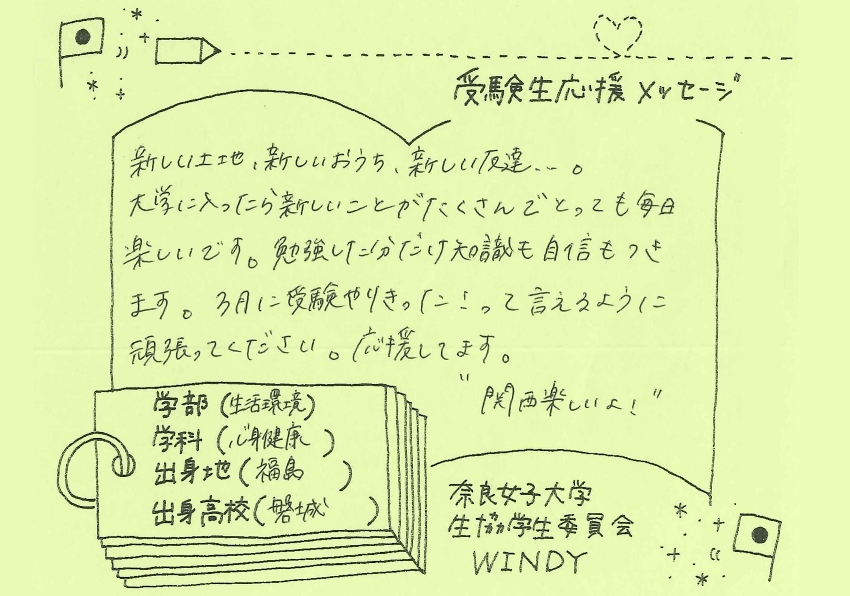 受験生応援メッセージ
新しい土地、新しいおうち、新しい友達...。
大学に入ったら新しいことがたくさんでとっても毎日
楽しいです。勉強した分だけ知識も自信もつき
ます。3月に受験やりきった!って言えるように
頑張ってください。応援してます。
"関西楽しいよ!"
学部(生活環境)
学科(心身健康)
出身地(福島)
出身高校(磐城)
奈良女子大学
生協学生委員会
WINDY